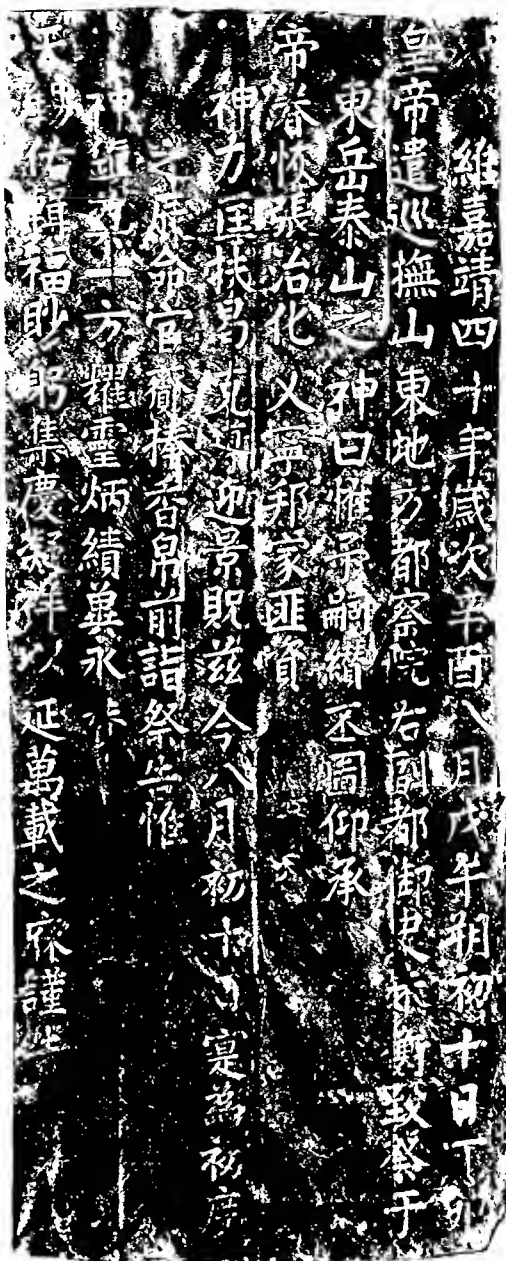 維嘉靖四十年歲次辛酉八月戊午朔初十日丁卯
皇帝遣巡撫山東地方都察院右副都御史 衡致祭于
東岳泰山之神曰惟予嗣纘丕圖仰承
帝眷恢張治化乂寧邦家匪資
神力匡扶曷克 迎景貺茲今八月初十日寔為初度
之辰命官齎捧香帛前詣祭告惟
神 一方耀靈炳績冀永
佑 福眇躬集慶 祥以延萬載之庥謹告